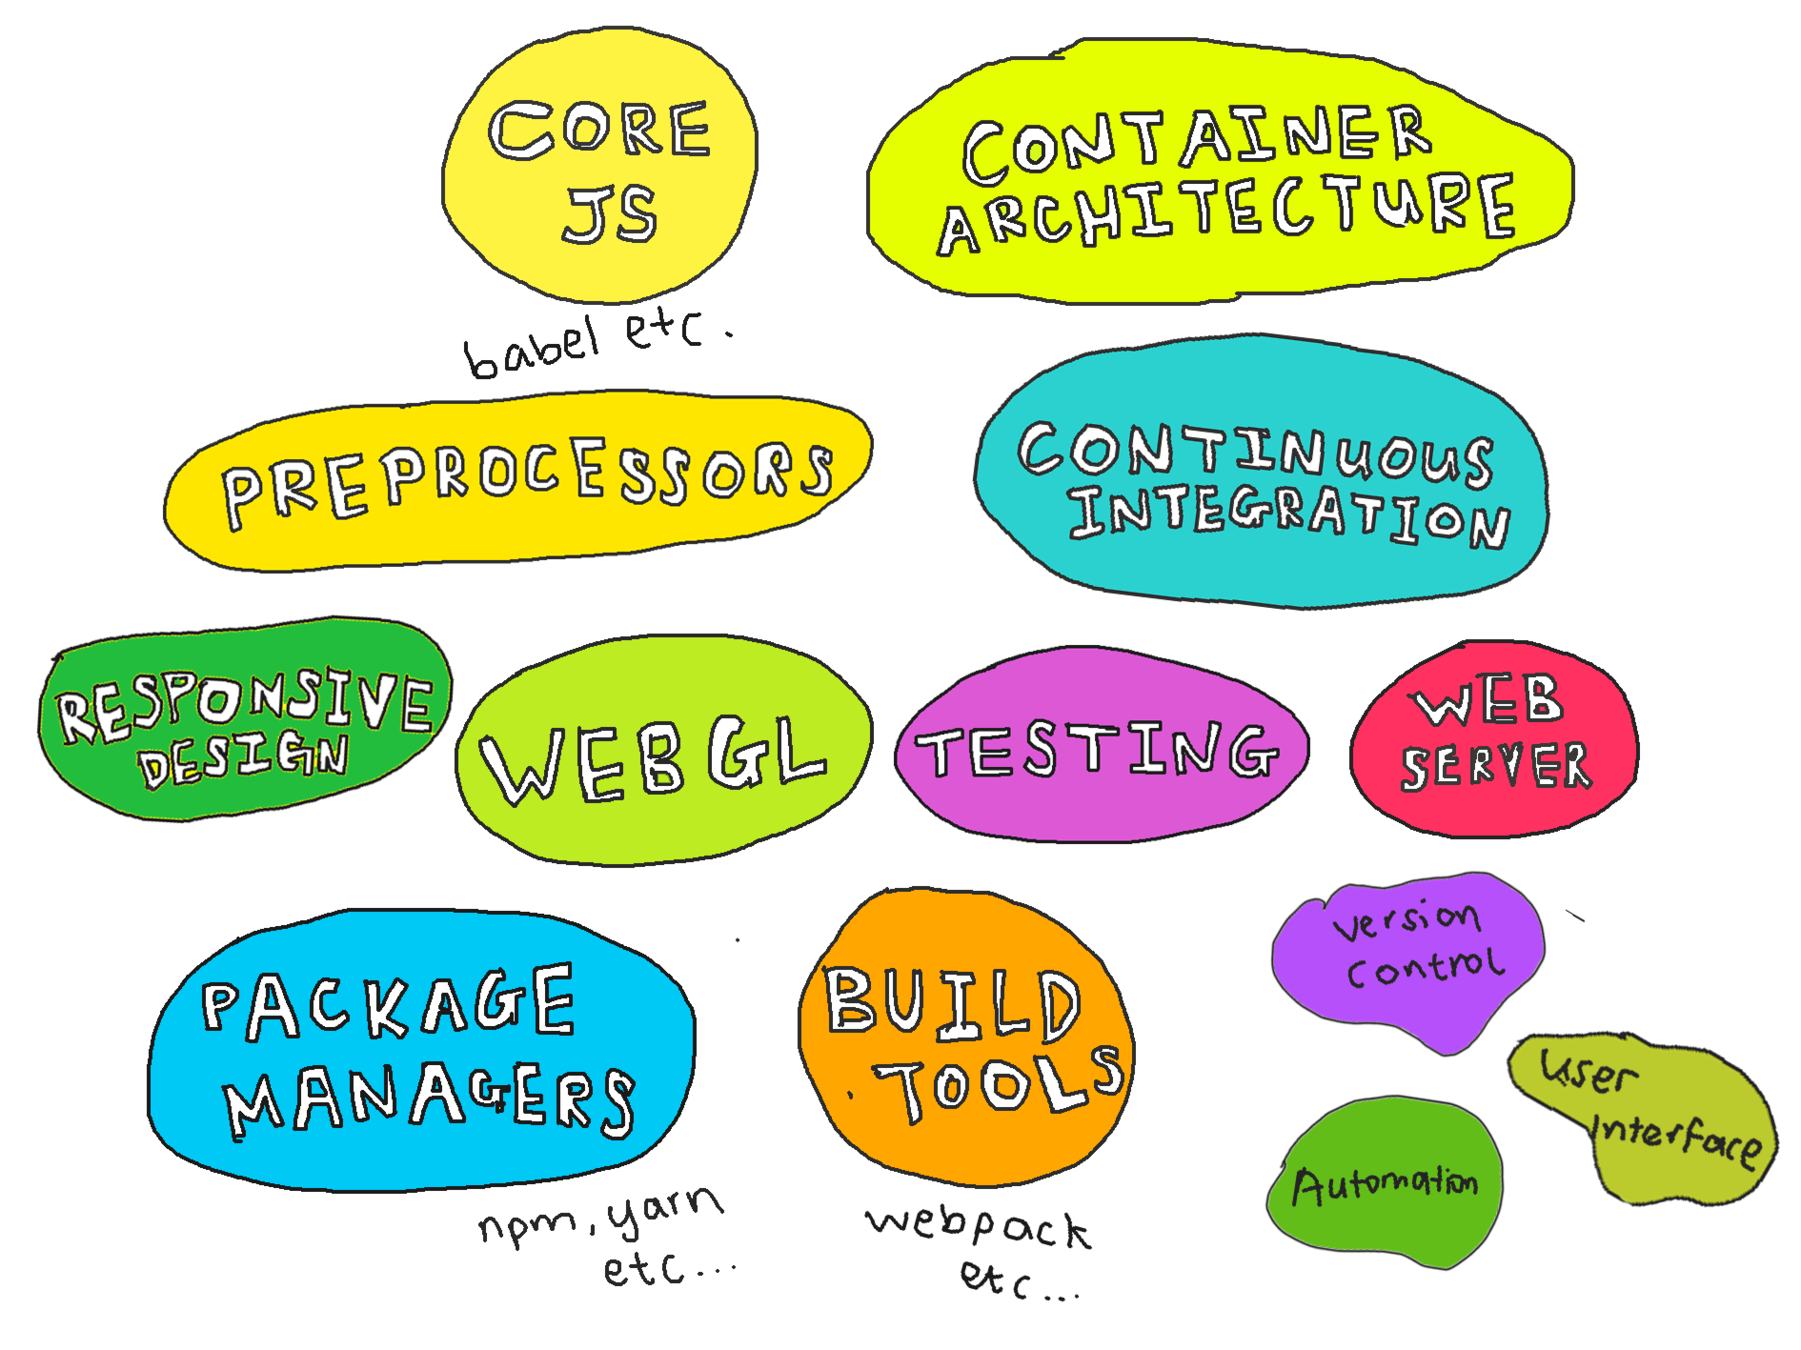 CORE
JS
babel etc.
CONTAINER
ARCHITECTURE
PREPROCESSORS
CONTINUOUS
INTEGRATION
RESPONSIVE
DESIGN
WEBGL
TESTING
WEB
SERVER
PACKAGE
MANAGERS
npm, yarn
etc...
BUILD
TOOLS
webpack
etc...
version
control
user
interface
Automation